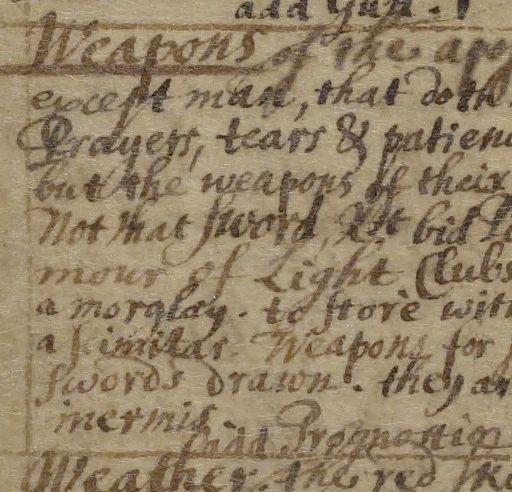 add Gun.
Weapons of the
except man, that doth
Prayers, tears & patienc
but the weapons of their
Not that sword, Xt bid
mour of Light Clubs
a morglay. to store with
a scimitar. Weapons for
swords drawn. they ar
inermis
add Prognostic
Weather. the red